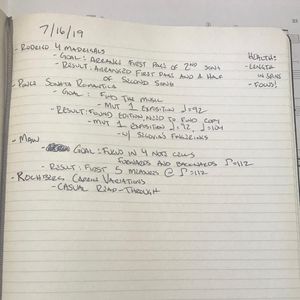 7/16/19
- Rodrigo 4 Madrigals
- Goal: Arrange First Page of 2nd Song
- Result: Arranged First Page and a Half
of Second Song
Health:
- Length
in Spine
- Food!
- Ponce Sonata Romantica
- Goal: Find the Music
- Mvt 1 Exposition ♩=92
- Result: Found Edition, Need to Find Copy
- Mvt 1 Exposition ♩=92, ♩=104
- w/ Segovia's Fingerings
- Goal: Fluid in 4 Note Cells
Forwards and Backwards ♩=112
- Result: First 5 Measures @ ♩=112
- Rochberg Caprice Variations
- Casual Read-Through